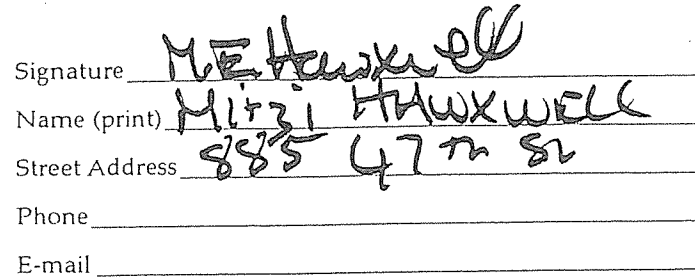 Signature M E Hawxwell
Name (print) Mitzi HAWXWELL
Street Address 885 47th St
Phone
E-mail